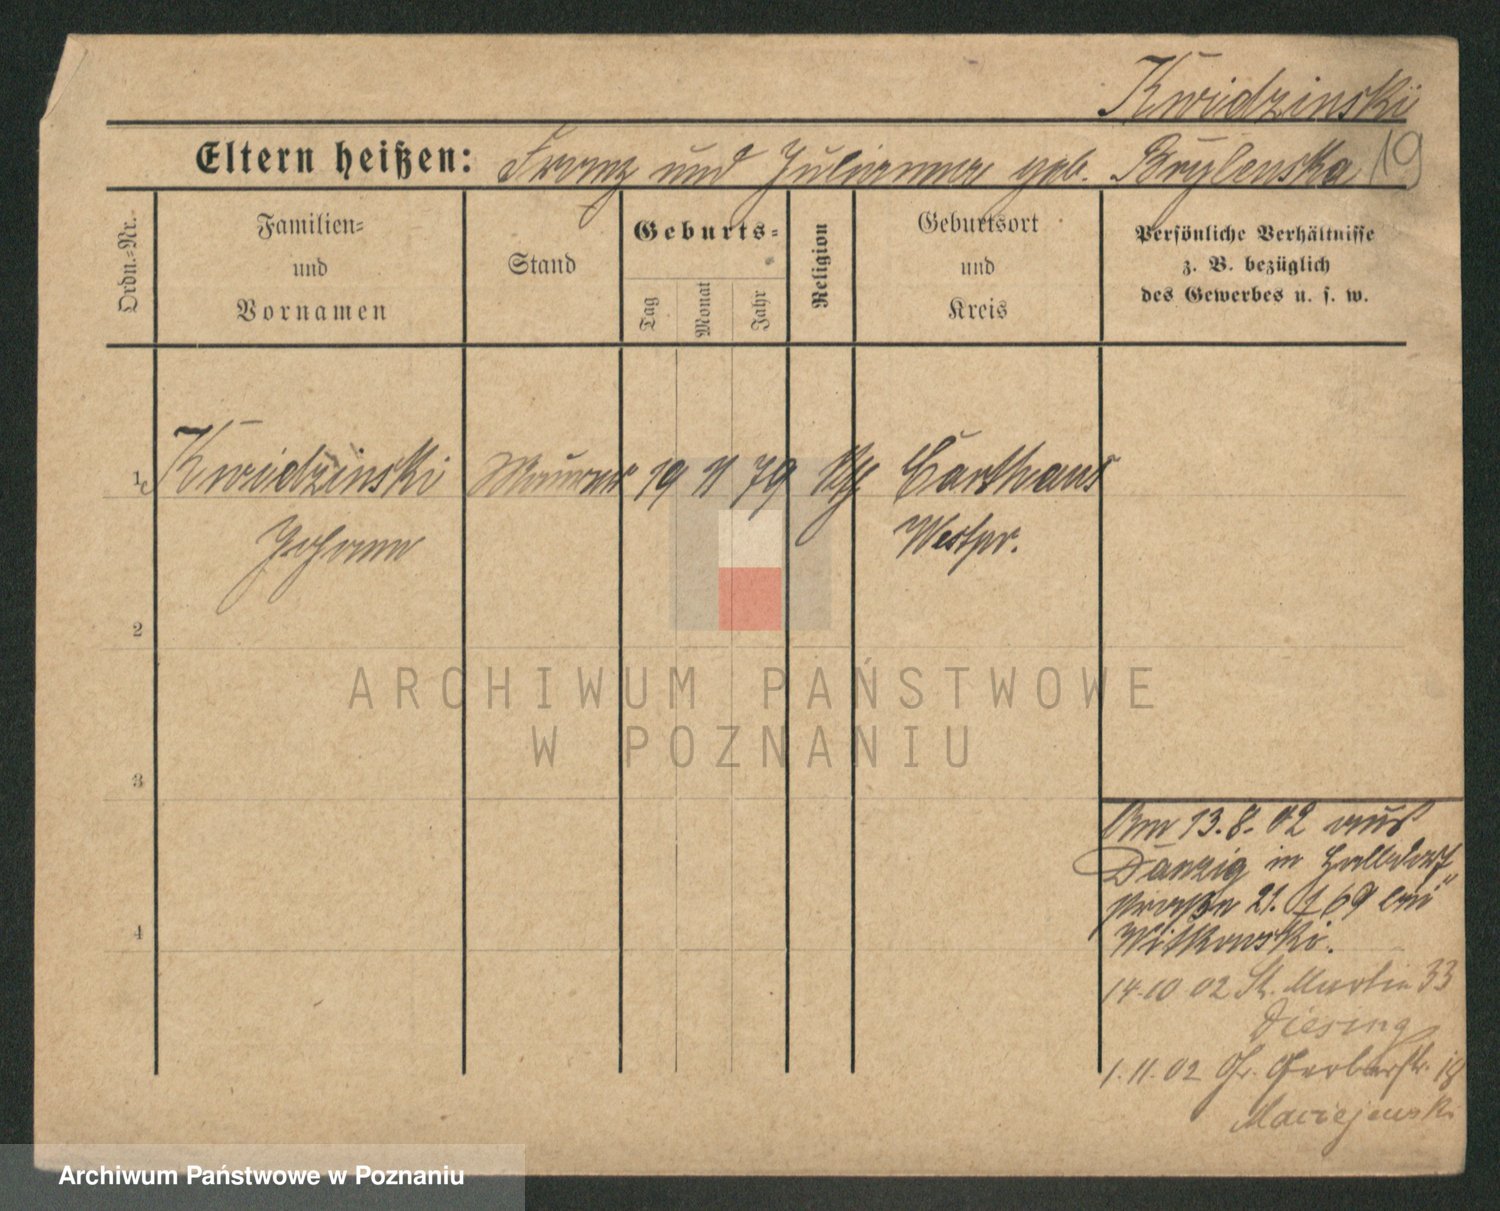 Kwidzinski
Eltern heißen: Franz und Julianna geb. Brylewska 19
Ordn.-Nr.
Familien-
und
Vornamen
Stand
Geburts-
Tag
Monat
Jahr
Religion
Geburtsort
und
Kreis
Persönliche Verhältnisse
z. B. bezüglich
des Gewerbes u. s. w.
1 Kwidzinski Maurer 19 11 79 kth Carthaus
Johann Westpr.
2
3
4
Am 13.8.02 aus
Danzig in Halbdorf
straße 21. 69 bei
Witkowski.
14.10 02 St. Martin 33
Diesing
1.11.02 Gr. Gerberstr. 18
Maciejewski
ARCHIWUM PAŃSTWOWE
W POZNANIU
Archiwum Państwowe w Poznaniu